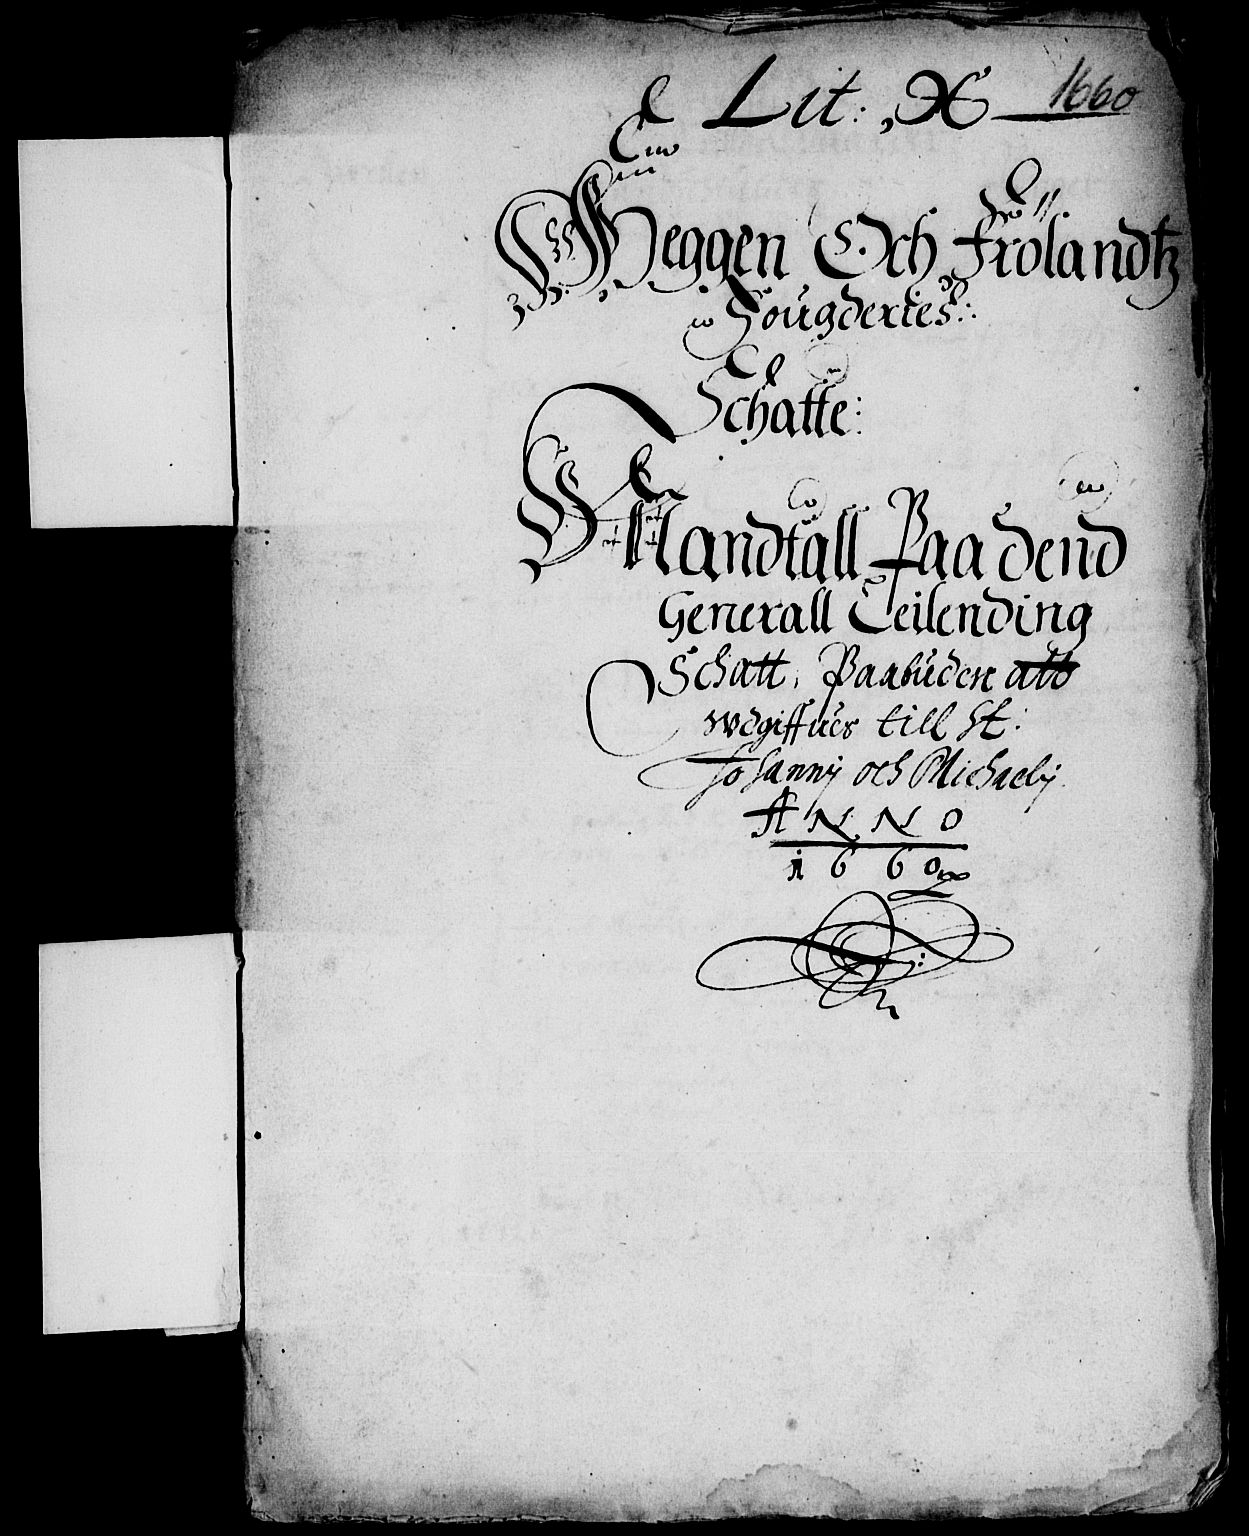 Lit: X 1660
Heggen Och Frölandtz
Fougderies:
Schatte:
Mandtall Paa dend
Generall Teilending
Schatt, Paabuden att
wdgiffues till St:
Johannij och Michaelij
ANNO
1660